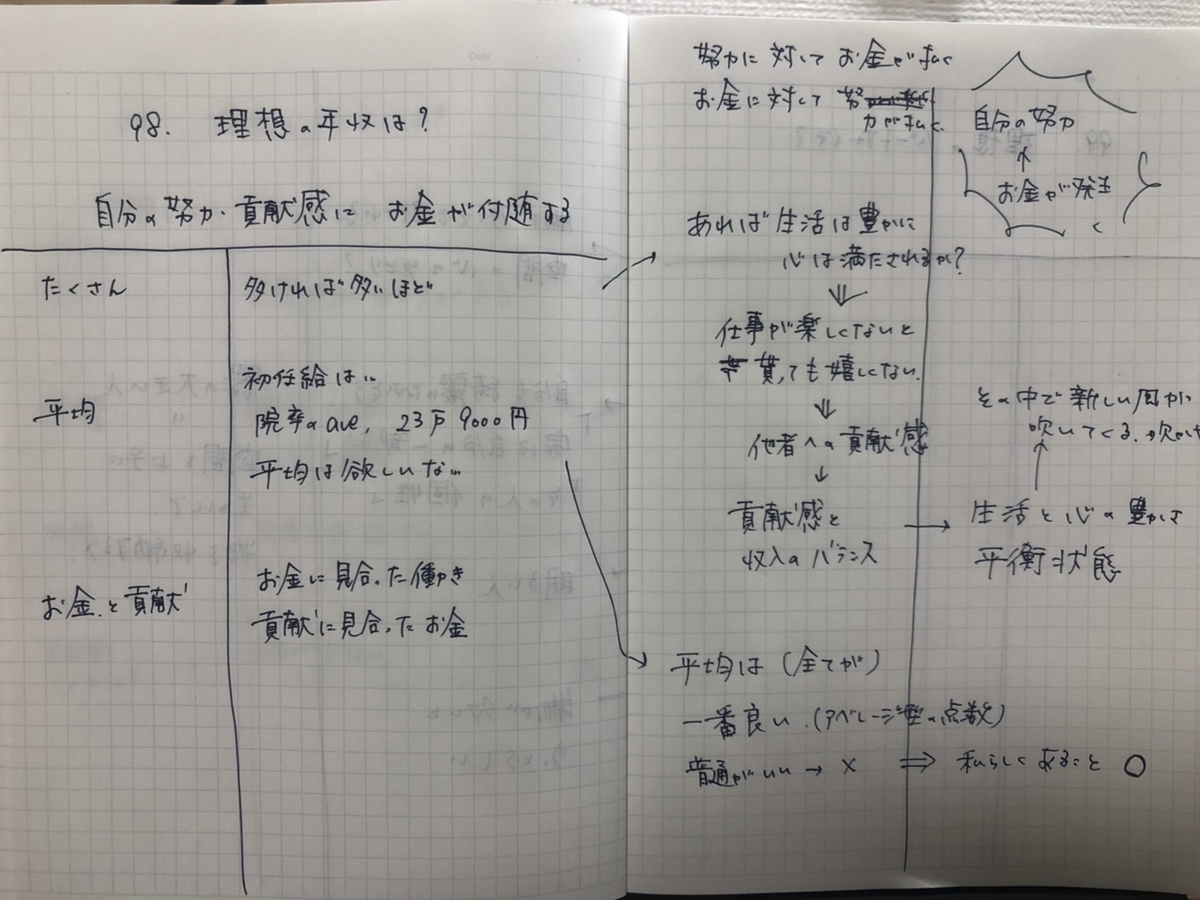 Date
98. 理想の年収は?
自分の努力・貢献感に お金が付随する
たくさん
多ければ多いほど
平均
初任給は…
院卒の ave, 23万9000円
平均は欲しいな…
お金と貢献
お金に見合った働き
貢献に見合ったお金
努力に対してお金が
お金に対して努
力が
自分の努力
お金が発生
あれば生活は豊かに
心は満たされるか?
仕事が楽しくないと
貰っても嬉しくない.
他者への貢献感
貢献感と
収入のバランス
生活と心の豊かさ
平衡状態
その中で新しい風が
吹いてくる.
平均は (全てが)
一番良い.(アベレージ型の点数)
普通がいい → × ⇒ 私らしくあること ○